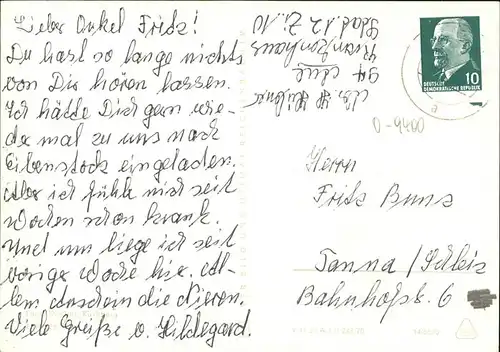 Lieber Onkel Fritz!
Du hast so lange nichts
von Dir hören lassen.
Ich hätte Dich gern wie-
der mal zu uns nach
Eibenstock eingeladen.
Aber ich fühle mich seit
Wochen schon krank.
Und nun liege ich seit
voriger Woche hier. Al-
lem Anschein die Nieren.
Viele Grüße v. Hildegard.
94 Aue
Krankenhaus
Stat. 12 Zi. 10
10
DEUTSCHE
DEMOKRATISCHE REPUBLIK
D-9400
Herrn
Fritz Buns
Tanna / Schleiz
Bahnhofstr. 6